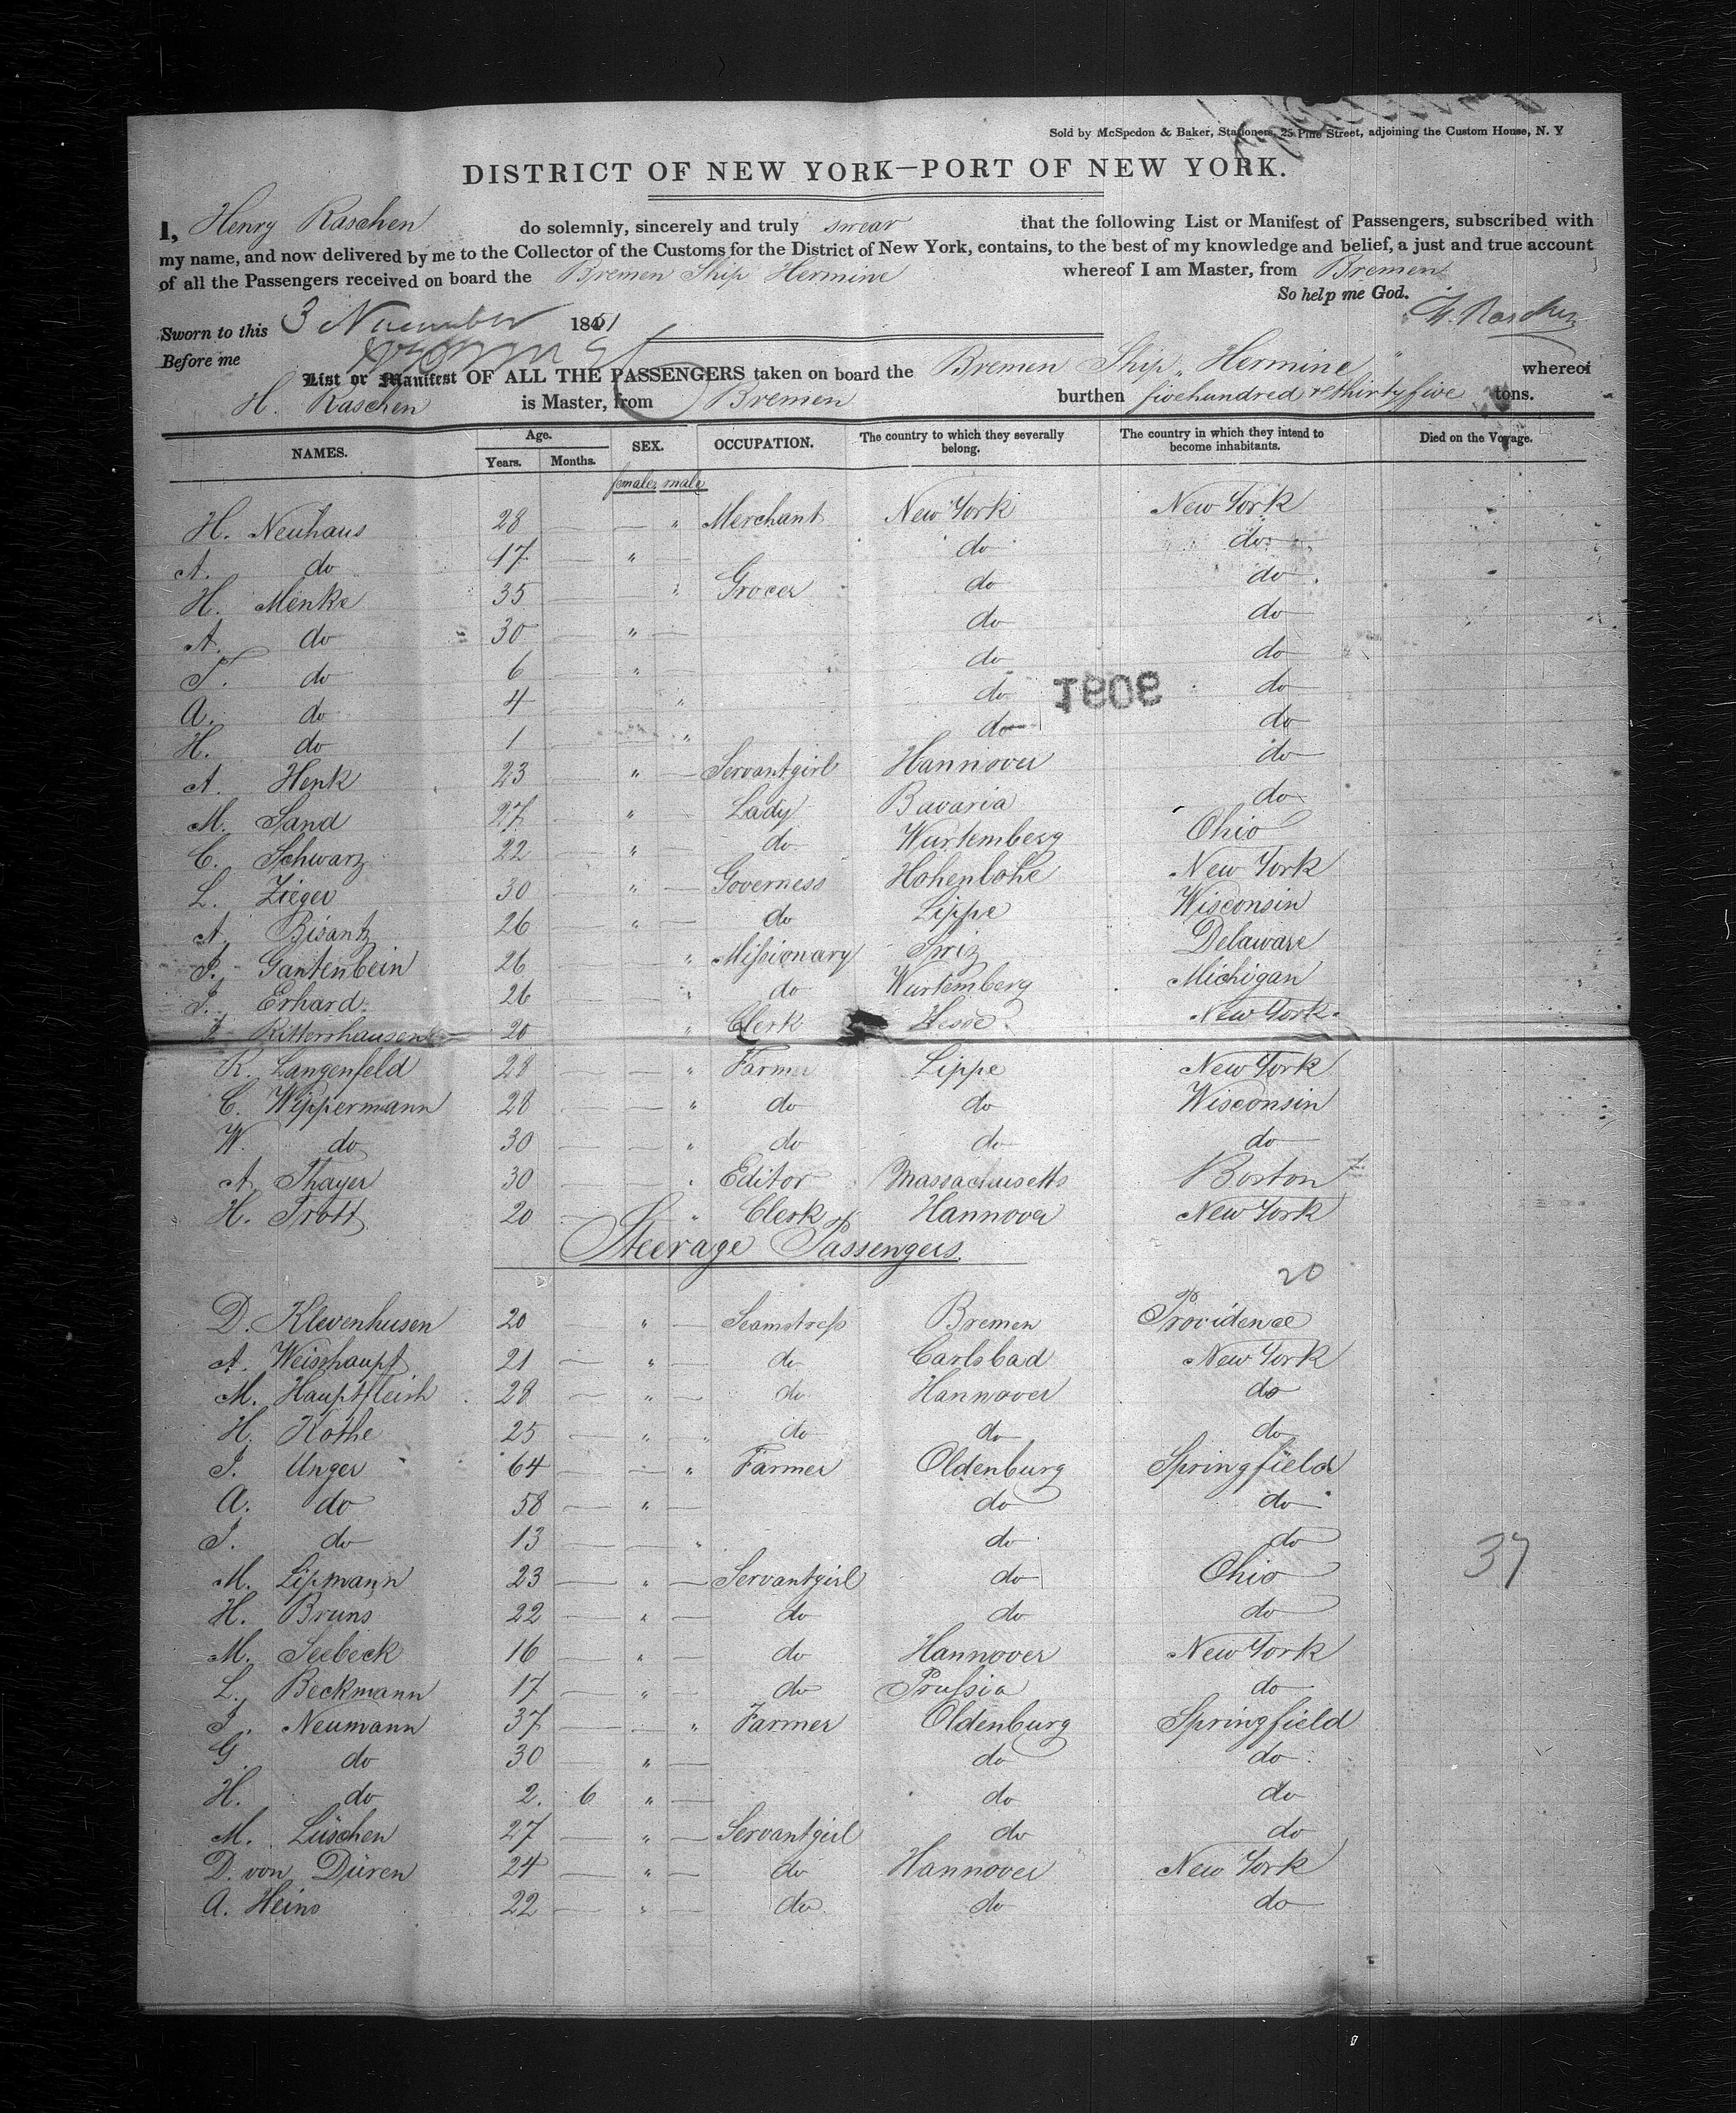 Sold by McSpedon & Baker, Stationers, 25 Pine Street, adjoining the Custom House, N. Y
DISTRICT OF NEW YORK—PORT OF NEW YORK.
I, Henry Raschen do solemnly, sincerely and truly swear that the following List or Manifest of Passengers, subscribed with
my name, and now delivered by me to the Collector of the Customs for the District of New York, contains, to the best of my knowledge and belief, a just and true account
of all the Passengers received on board the Bremen Ship Hermine whereof I am Master, from Bremen
So help me God.
H. Raschen
Sworn to this 3 November 1851
Before me
List or Manifest OF ALL THE PASSENGERS taken on board the Bremen Ship „Hermine" whereof
H. Raschen is Master, from Bremen burthen fivehundred & thirtyfive tons.
NAMES. Age. Years. Months. SEX. OCCUPATION. The country to which they severally belong. The country in which they intend to become inhabitants. Died on the Voyage.
females male
H. Neuhaus 28 — — " Merchant New York New York
A. do 17 — " — do do
H. Menke 35 — — " Grocer do do
A. do 30 — " — do do
T. do 6 — " — do do
A. do 4 — — " do do
1806
H. do 1 — — " do do
A. Henk 23 — " — Servantgirl Hannover do
M. Sand 27 — " — Lady Bavaria do
C. Schwarz 22 — " — do Wurtemberg Ohio
L. Zieger 30 — " — Governess Hohenlohe New York
A. Bisantz 26 — " — do Lippe Wisconsin
J. Gantenbein 26 — — " Missionary Swiz Delaware
J. Erhard 26 — — " do Wurtemberg Michigan
Rittershausen 20 " Clerk Hesse New York
R. Langenfeld 28 — — " Farmer Lippe New York
C. Wippermann 28 — " do do Wisconsin
W. do 30 — — " do do do
A. Thayer 30 — — " Editor Massachusetts Boston
H. Trott 20 — " Clerk Hannover New York
Steerage Passengers
20
D. Klevenhusen 20 — " — Seamstress Bremen Providence
A. Weisshaupt 21 — " — do Carlsbad New York
M. Hauptfleish 28 — " — do Hannover do
H. Kothe 25 — " " do do do
J. Unger 64 — — " Farmer Oldenburg Springfield
A. do 58 — " — do do
J. do 13 — — " do do
37
M. Lipmann 23 — " — Servantgirl do Ohio
H. Bruns 22 — " — do do do
M. Seebeck 16 — " — do Hannover New York
L. Beckmann 17 — " — do Prussia do
J. Neumann 37 — — " Farmer Oldenburg Springfield
G. do 30 — " — do do
H. do 2. 6 " — do do
M. Lüschen 27 — " — Servantgirl do do
D. von Düren 24 — " — do Hannover New York
A. Heins 22 — " — do do do